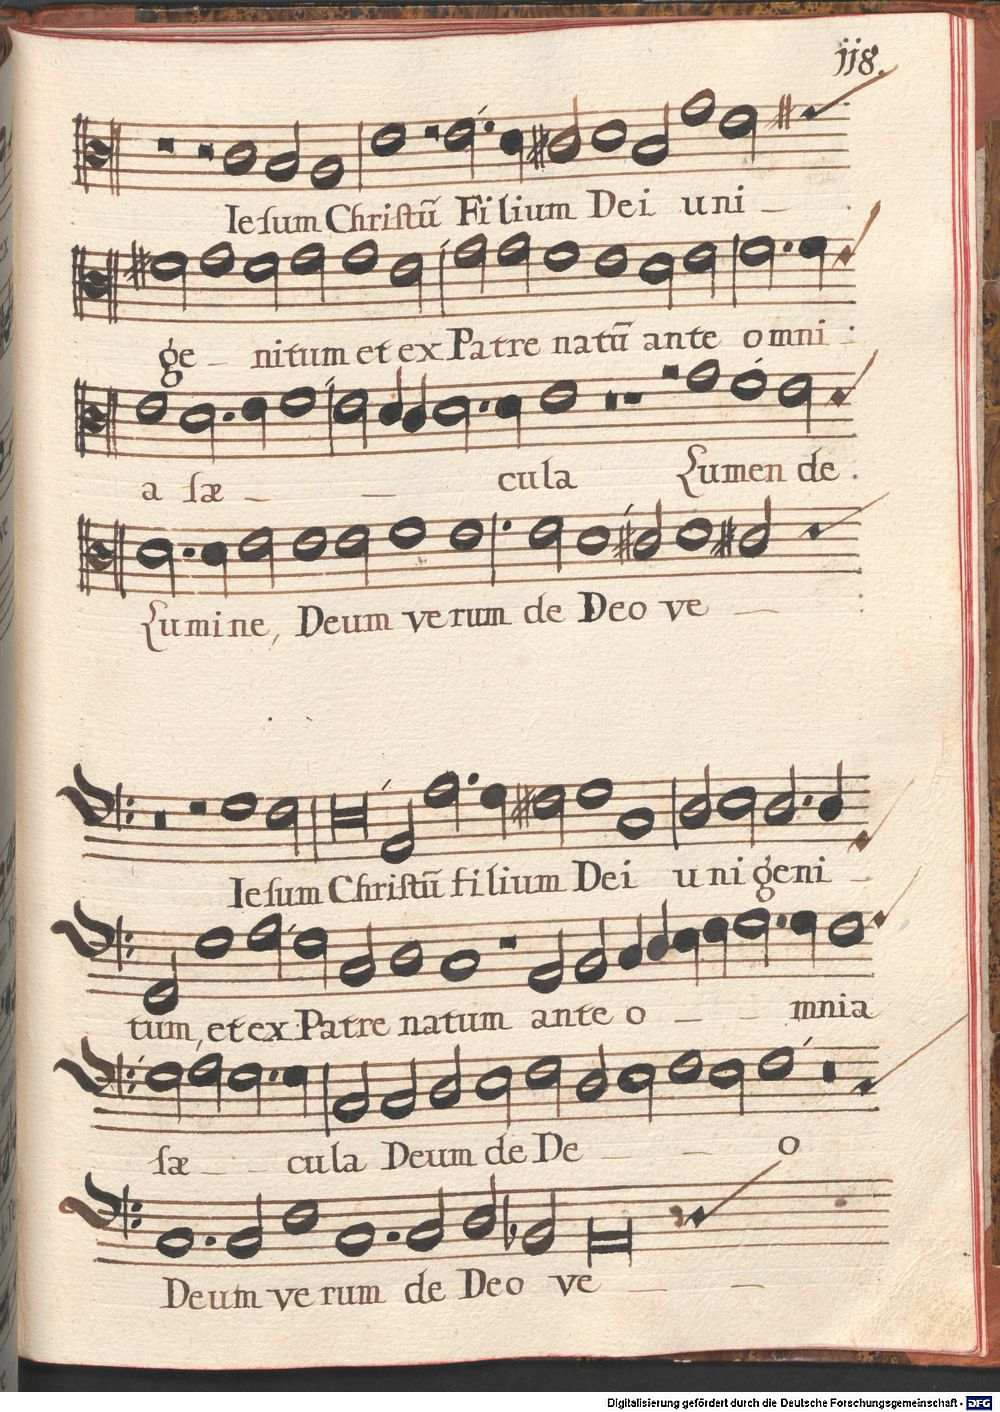 jj8.
Iesum Christũ Filium Dei uni _
ge _ nitum et ex Patre natũ ante omni
a sæ _ _ cula Lumen de
Lumine, Deum verum de Deo ve _
Iesum Christũ filium Dei unigeni _
tum, et ex Patre natum ante o _ _ mnia
sæ _ _ cula Deum de De _ _ o
Deum verum de Deo ve _ _
Digitalisierung gefördert durch die Deutsche Forschungsgemeinschaft - DFG